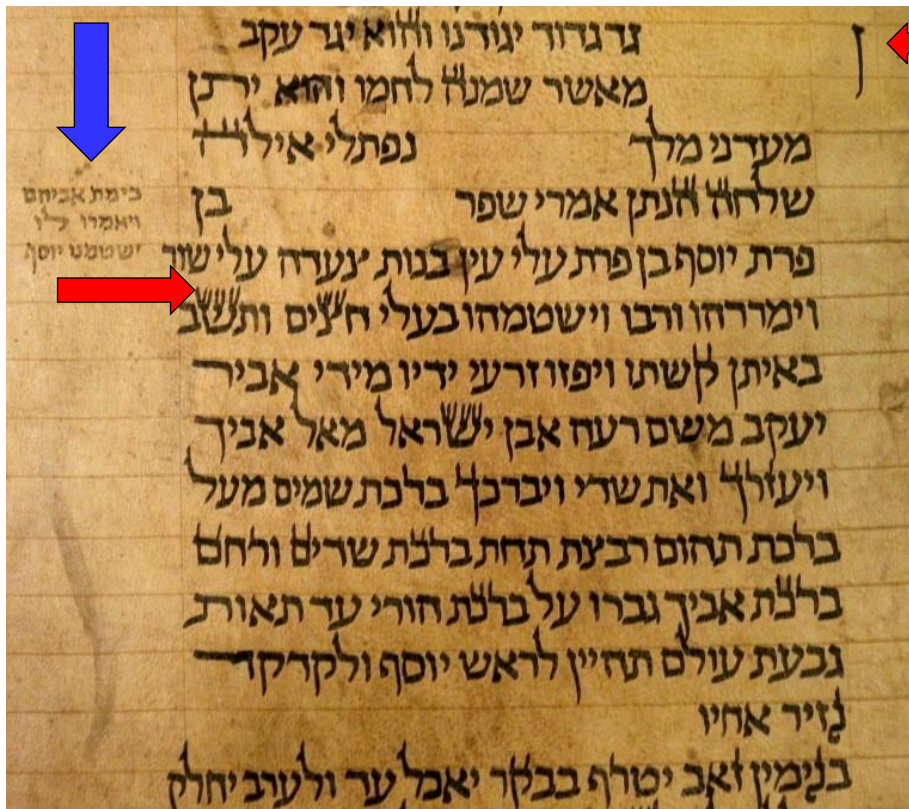 גד גדוד יגודנו והוא יגד עקב
מאשר שמנה לחמו והוא יתן
מעדני מלך נפתלי אילה
שלחה הנתן אמרי שפר בן
פרת יוסף בן פרת עלי עין בנות צעדה עלי שור
וימררהו ורבו וישטמהו בעלי חצים ותשב
באיתן קשתו ויפזו זרעי ידיו מידי אביר
יעקב משם רעה אבן ישראל מאל אביך
ויעזרך ואת שדי ויברכך ברכת שמים מעל
ברכת תהום רבצת תחת ברכת שדים ורחם
ברכת אביך גברו על ברכת הורי עד תאות
גבעת עולם תהיין לראש יוסף ולקדקד
נזיר אחיו
בנימין זאב יטרף בבקר יאכל עד ולערב יחלק
ן
כי מת אביהם
ויאמרו לו
ישטמנו יוסף